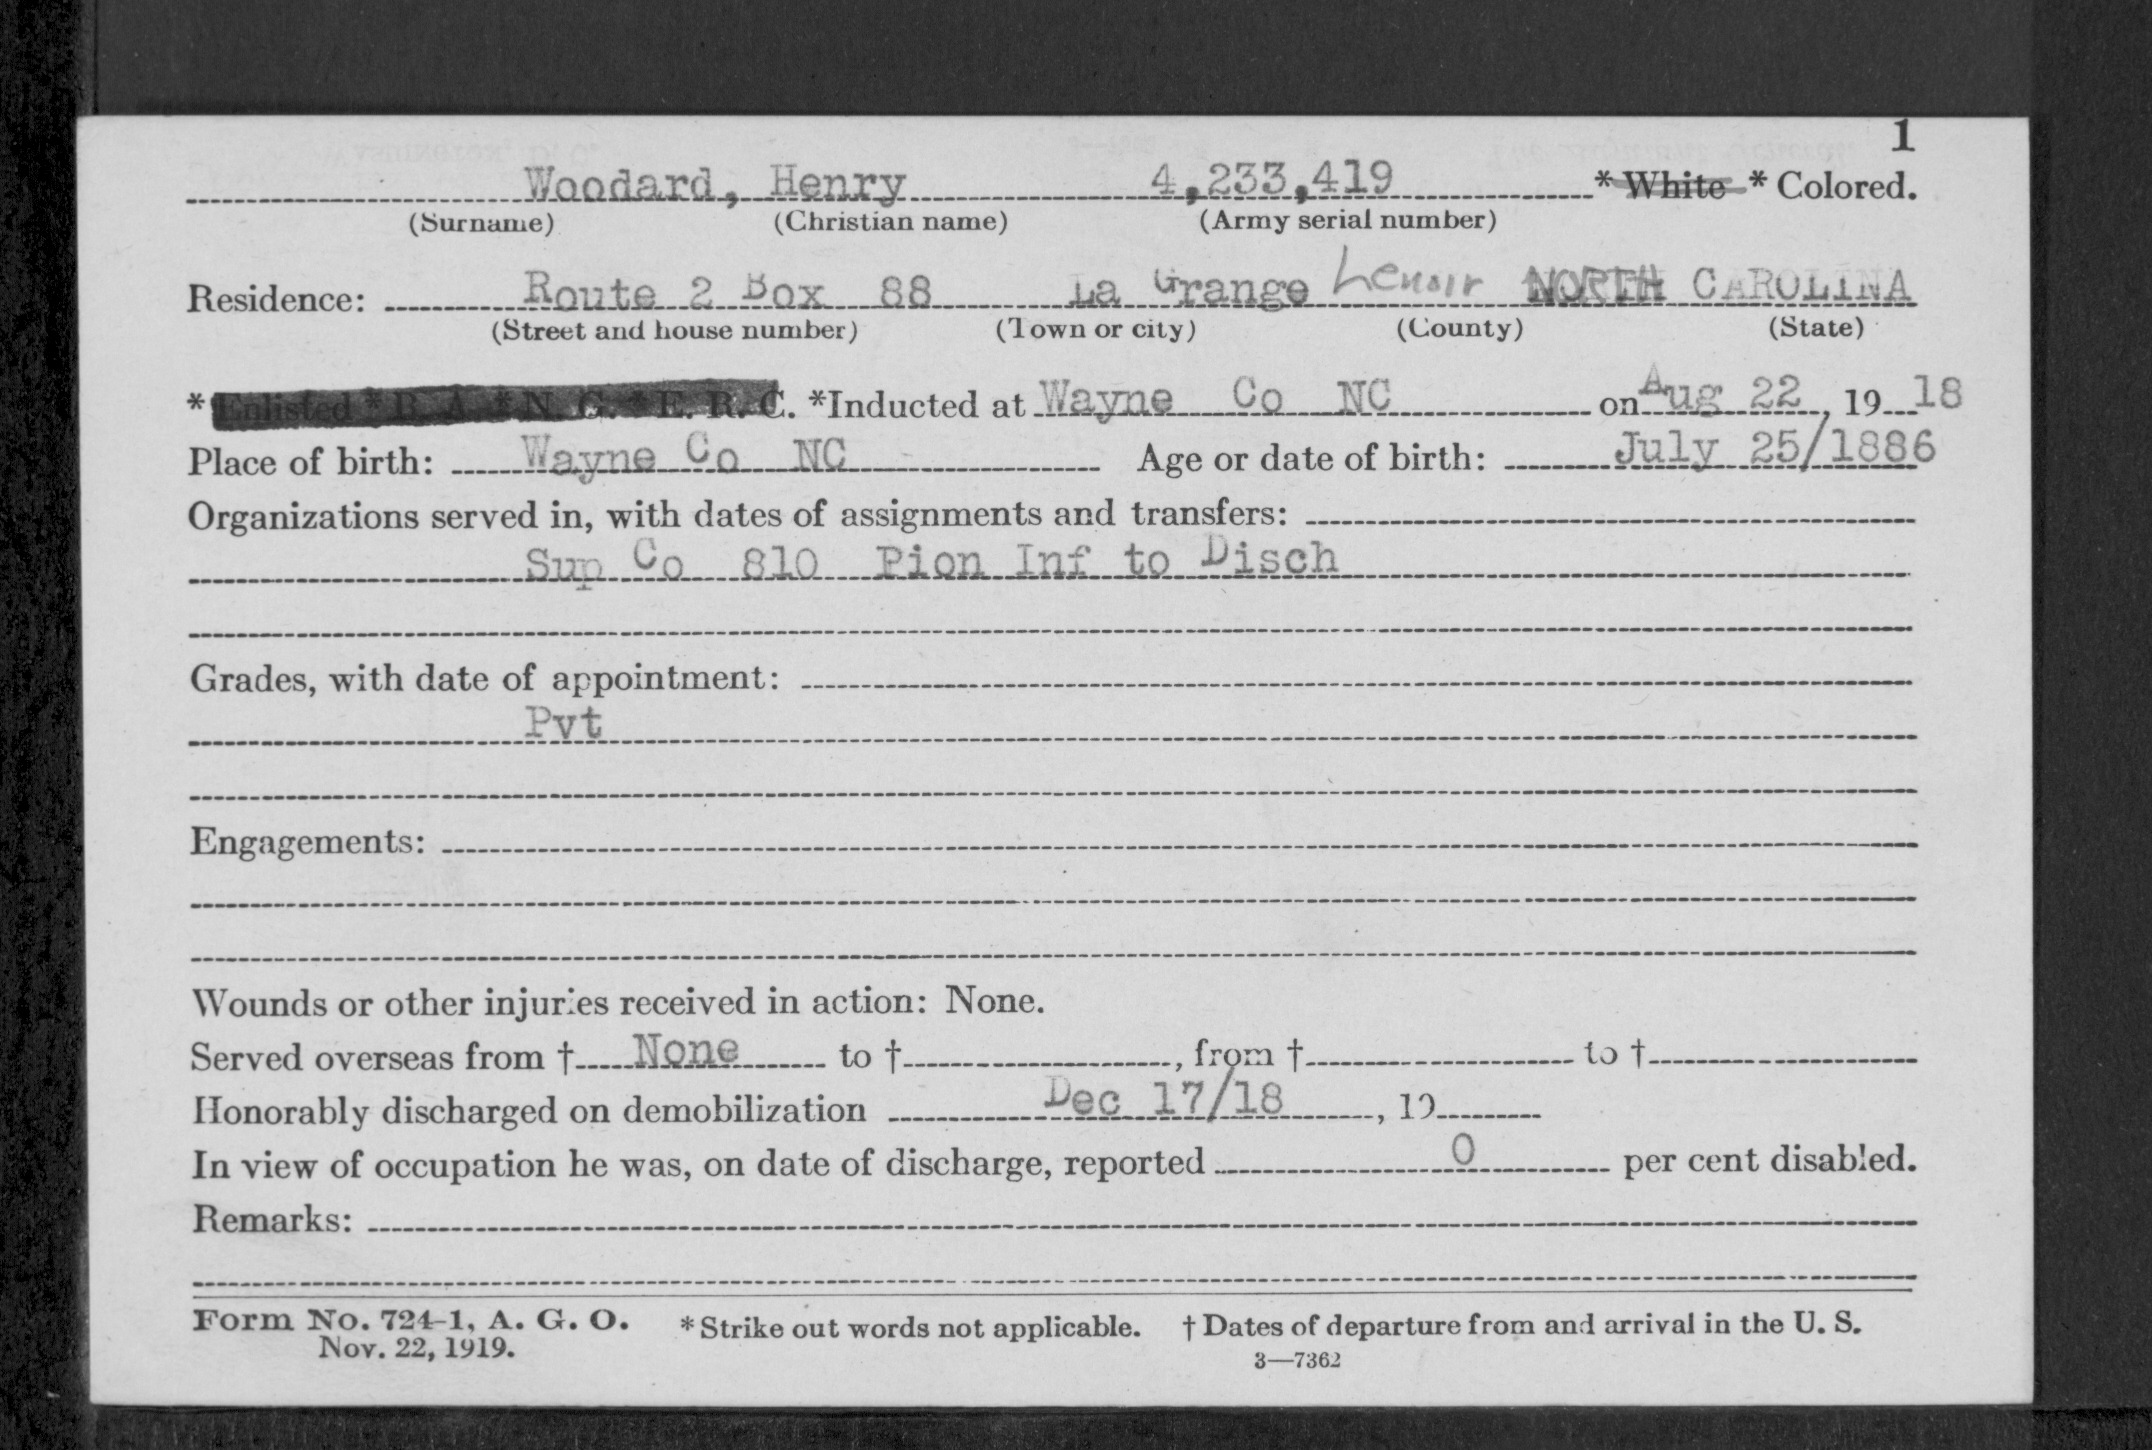 1
Woodard, Henry 4,233,419 * White * Colored.
(Surname) (Christian name) (Army serial number)
Residence: Route 2 Box 88 La Grange Lenoir NORTH CAROLINA
(Street and house number) (Town or city) (County) (State)
* Enlisted * R. A. * N. G. * E. R. C. *Inducted at Wayne Co NC on Aug 22, 19 18
Place of birth: Wayne Co NC Age or date of birth: July 25/1886
Organizations served in, with dates of assignments and transfers:
Sup Co 810 Pion Inf to Disch
Grades, with date of appointment:
Pvt
Engagements:
Wounds or other injuries received in action: None.
Served overseas from † None to †, from † to †
Honorably discharged on demobilization Dec 17/18, 19
In view of occupation he was, on date of discharge, reported 0 per cent disabled.
Remarks:
Form No. 724-1, A. G. O. * Strike out words not applicable. † Dates of departure from and arrival in the U. S.
Nov. 22, 1919.
3—7362